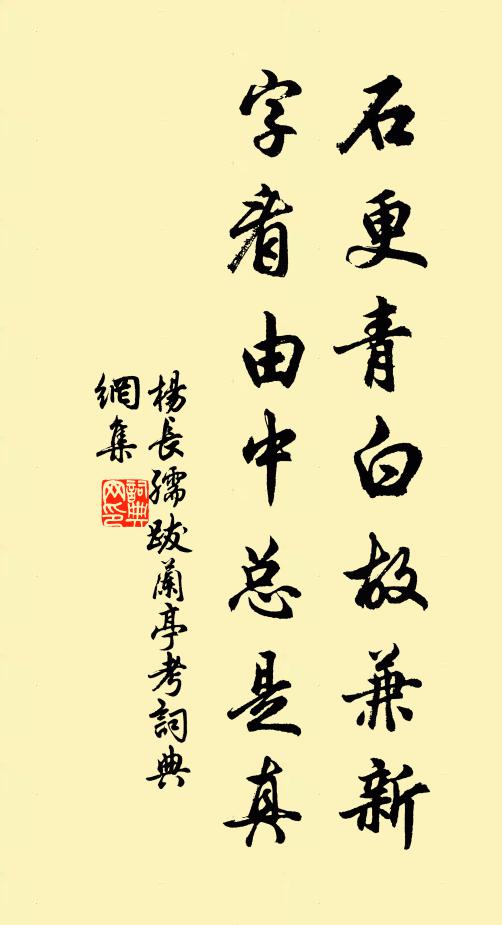 石更青白故兼新
字看由中总是真
楊長孺跋蘭亭考詞典
網集
詞典